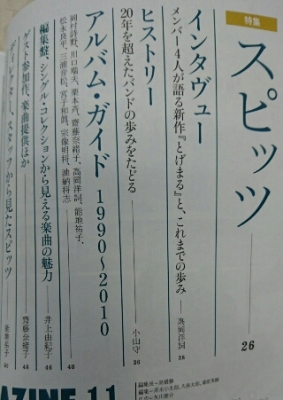 特集
スピッツ
26
インタヴュー
メンバー4人が語る新作『とげまる』と、これまでの歩み
高岡洋詞
28
ヒストリー
20年を超えたバンドの歩みをたどる
小山守
36
アルバム・ガイド 1990〜2010
岡村詩野、川口瑞夫、栗本斉、齋藤奈緒子、高岡洋詞、能地祐子、
松永良平、三浦信松、宮子和眞、宗像明将、渡納科志
40
編集盤、シングル・コレクションから見える楽曲の魅力
井上由紀子
48
ゲスト参加作、楽曲提供ほか
齋藤奈緒子
AZINE 11